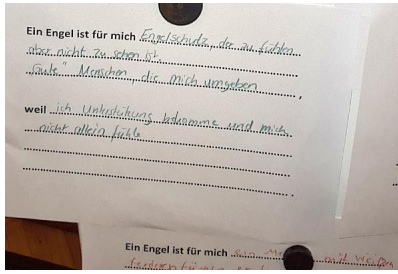 Ein Engel ist für mich Engelschutz, der zu fühlen
aber nicht zu sehen ist.
"Gute" Menschen, die mich umgeben,
weil ich Unterstützung bekomme und mich
nicht allein fühle
Ein Engel ist für mich ein mit weißen